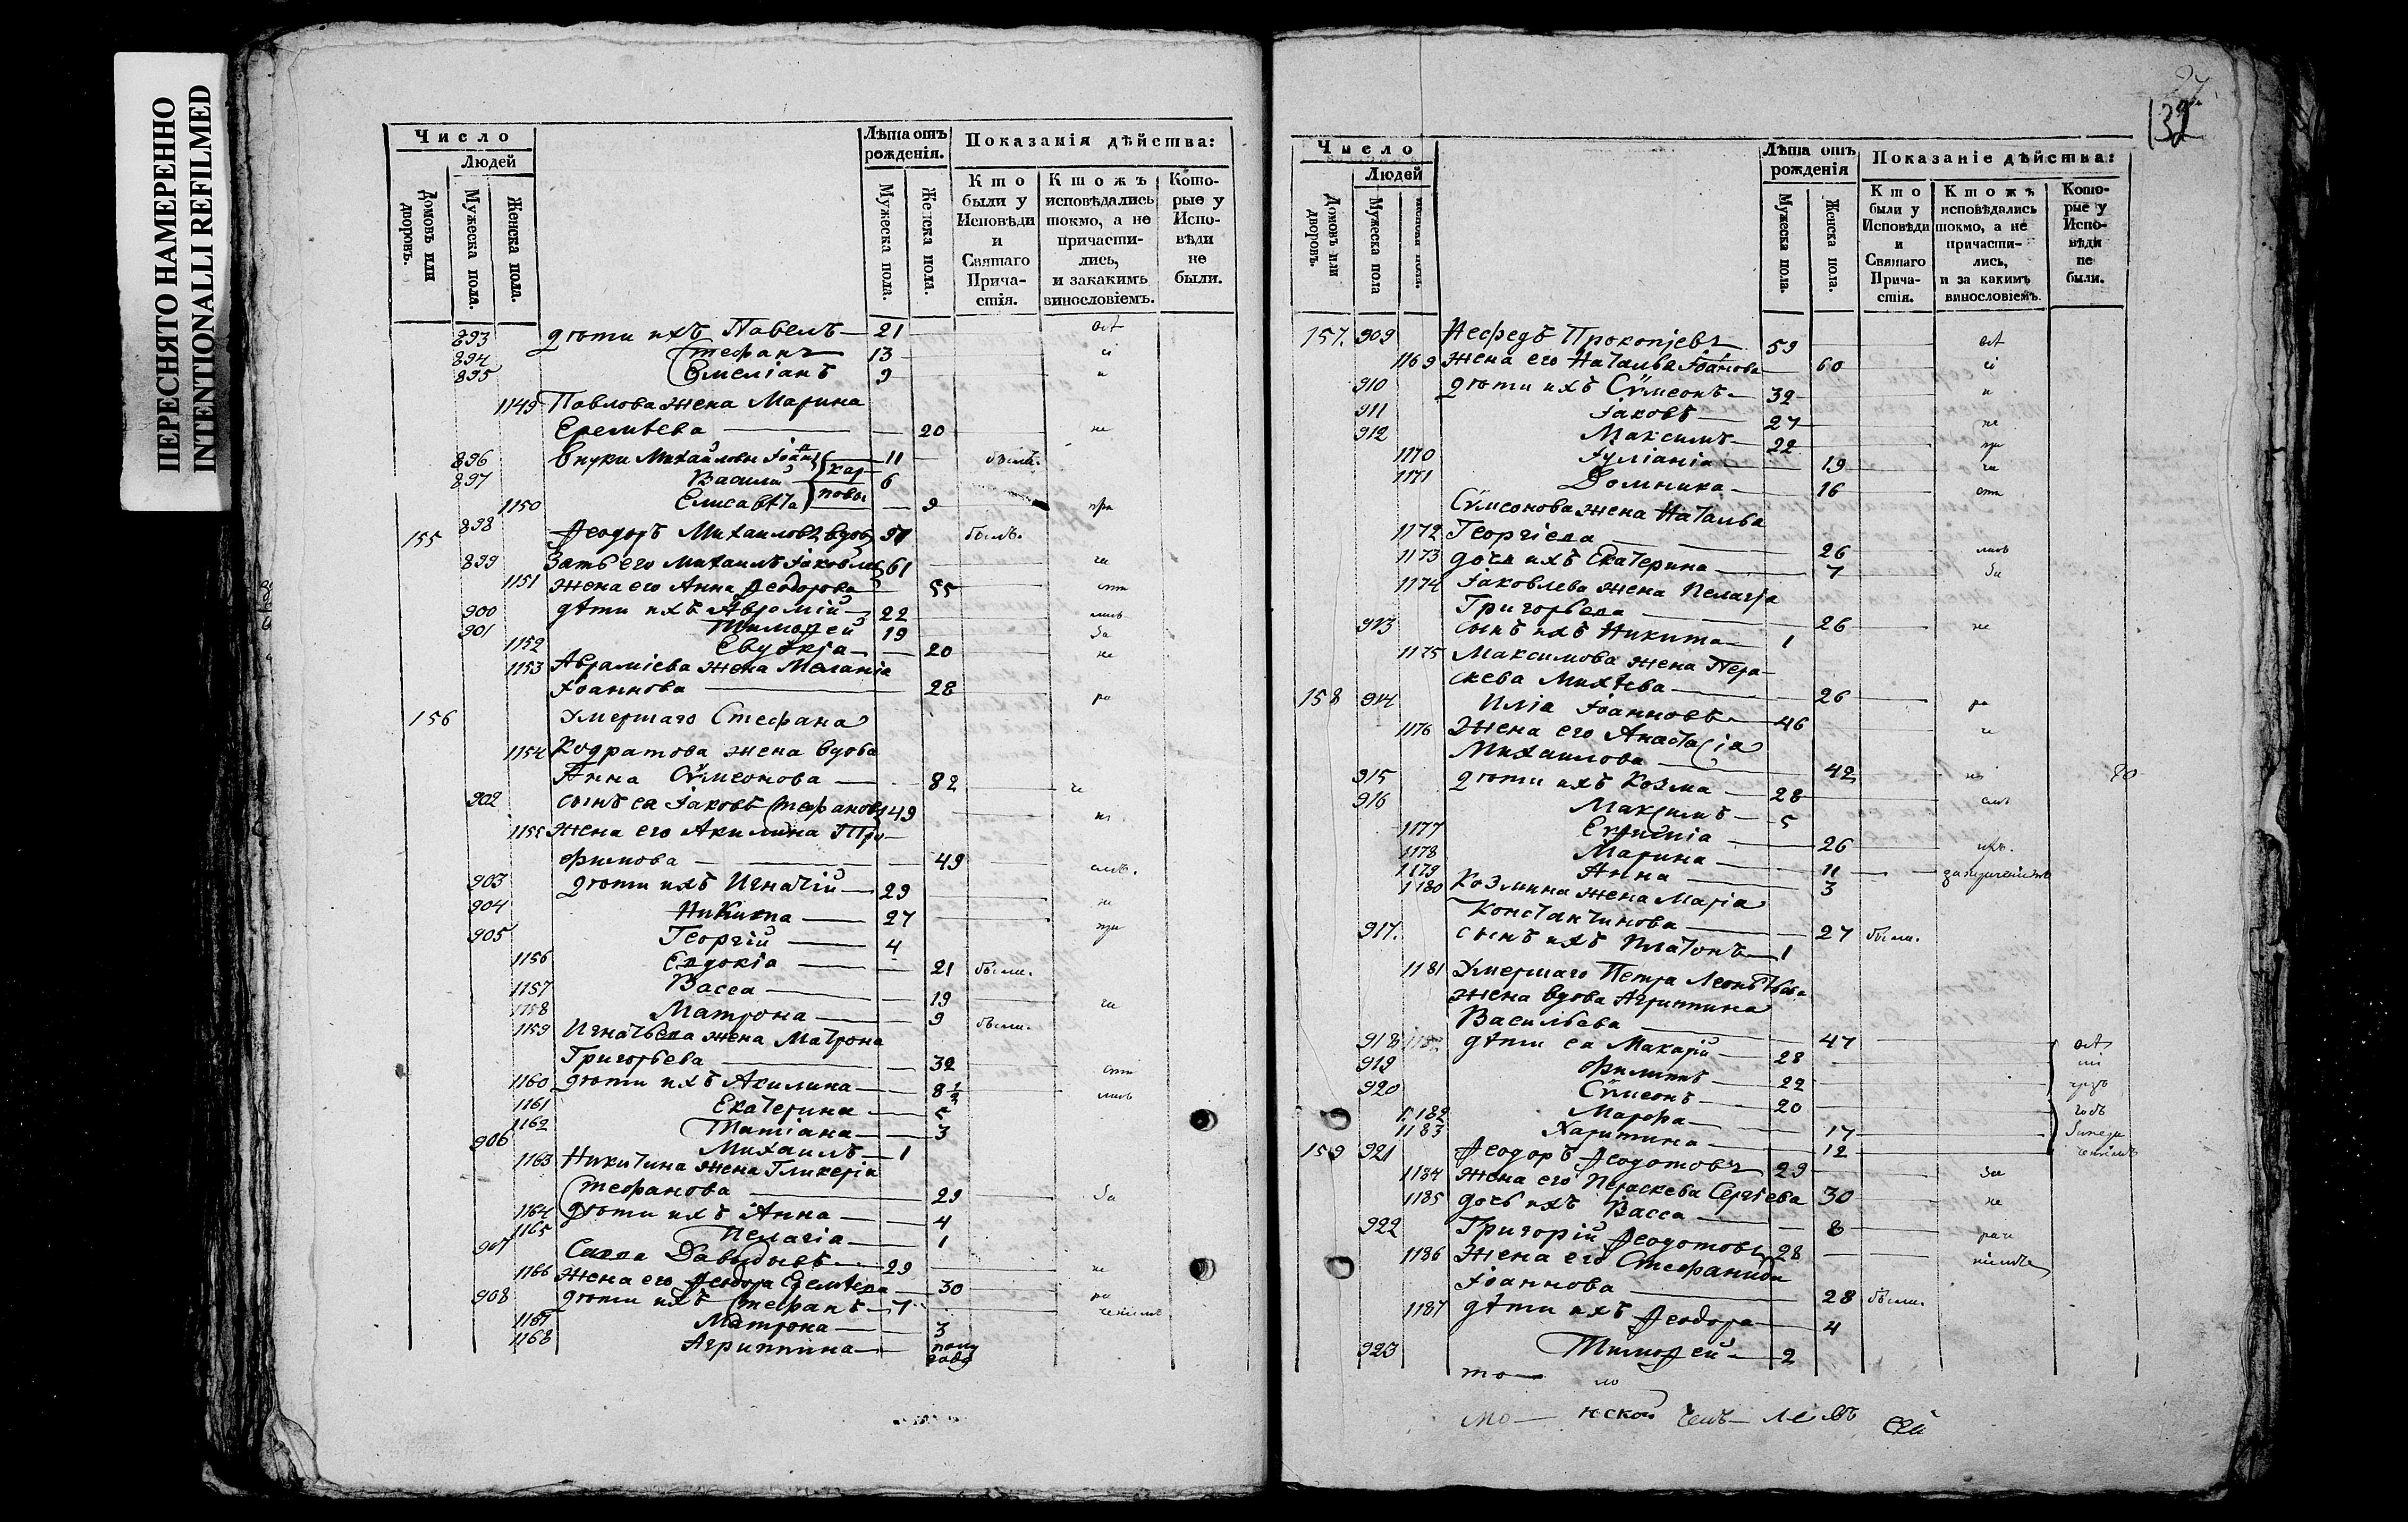 ПЕРЕСНЯТО НАМЕРЕННО
INTENTIONALLI REFILMED
Число
Людей
Домовъ или дворовъ.
Мужеска пола.
Женска пола.
Лѣта отъ рожденія.
Мужеска пола.
Женска пола.
Показанія дѣйства:
Кто были у Исповѣди и Святаго Причастія.
Ктожъ исповѣдались токмо, а не причастились, и закакимъ винословіемъ.
Которые у Исповѣди не были.
893 дѣти ихъ Павелъ 21
894 Стефанъ 13
895 Емеліанъ 9
1149 Павлова жена Марина
Еремѣева 20 не
896 внуки Михайловы Іоан 11 были.
897 Василий кар 6
1150 Елисавѣта повы 9 при
155 898 Ѳеодоръ Михаиловъ вдов 97 былъ.
899 Зать его Михаилъ Іаковлев 61 ча
1151 жена его Анна Ѳеодорова 55 сти
900 дѣти ихъ Аврамій 22 лись
901 Тимоѳей 19 За
1152 Евдокіа 20 не
1153 Авраміева жена Меланіа
Іоаннова 28 ра
156 Умершаго Стефана
1154 Кодратова жена вдова
Анна Сѵмеонова 82 че
902 сынъ ея Іаковъ Стефановъ 49 ні
1155 жена его Акилина Тро-
фимова 49 емъ.
903 дѣти ихъ Игнатій 29 не
904 Никита 27
905 Георгій 4 при
1156 Евдокіа 21 были.
1157 Васса 19
1158 Матрона 9 ча
1159 Игнатьева жена Матрона были.
Григорьева 32
1160 дѣти ихъ Акилина 8½ сти
1161 Екатерина 5 лись
1162 Татіана 3
906 Михаилъ 1
1163 Никитина жена Гликеріа
Стефанова 29 За
1164 дѣти ихъ Анна 4
1165 Пелагіа 1
907 Савва Давыдовъ 29 не
1166 жена его Ѳеодора Еремѣева 30 ра
908 дѣти ихъ Стефанъ 7 ченіемъ
1167 Матрона 3
1168 Агриппина полу года
132
Число
Людей
Домовъ или дворовъ.
Мужеска пола
Женска пола.
Лѣта отъ рожденія
Мужеска пола.
Женска пола.
Показаніе дѣйства:
Кто были у Исповѣди и Святаго Причастія.
Ктожъ исповѣдались токмо, а не причастились, и за какимъ винословіемъ.
Которые у Исповѣди не были.
157. 909 Нефедъ Прокопіевъ 59
1169 жена его Наталья Іоанова 60
910 дѣти ихъ Сѵмеонъ 32
911 Іаковъ 27 не
912 Максимъ 22 при
1170 Іуліаніа 19 ча
1171 Домника 16 сти
Сѵмеонова жена Наталья
1172 Георгіева 26 лись
1173 дочь ихъ Екатерина 7 За
1174 Іаковлева жена Пелагіа
Григорьева 26 не
913 сынъ ихъ Никита 1
1175 Максимова жена Пара-
скева Михѣева 26 ра
158 914 Иліа Іоанновъ 46
1176 Жена его Анастасіа че
Михаилова 42 ні
915 дѣти ихъ Козма 28
916 Максимъ 5 емъ
1177 Евфиміа 26
1178 Марина 11
1179 Анна 3
1180 Козмина жена Маріа
Константинова 27 были.
917. сынъ ихъ Платонъ 1
1181 Умершаго Петра Леонтьева
жена вдова Агриппина
Васильева 47
918 дѣти еа Макарій 28
919 Филиппъ 22
920 Сѵмеонъ 20
1182 Марфа 17
1183 Харитина 12
159 921 Ѳеодоръ Ѳеодотовъ 29
1184 жена его Параскева Сергѣева 30 За
1185 дочь ихъ Васса 8 не
922 Григорій Ѳеодотовъ 28 раче
1186 жена его Стефанида ніемъ
Іоаннова 28 были.
1187 дѣти ихъ Ѳеодора 4
923 Тимоѳей 2